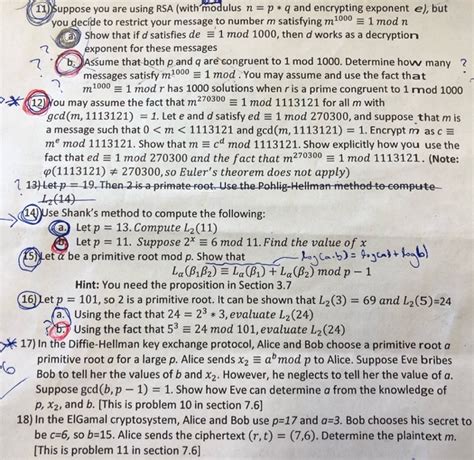 11) Suppose you are using RSA (with modulus n = p * q and encrypting exponent e), but
you decide to restrict your message to number m satisfying m^1000 ≡ 1 mod n
a. Show that if d satisfies de ≡ 1 mod 1000, then d works as a decryption
exponent for these messages
? b. Assume that both p and q are congruent to 1 mod 1000. Determine how many ?
messages satisfy m^1000 ≡ 1 mod . You may assume and use the fact that
m^1000 ≡ 1 mod r has 1000 solutions when r is a prime congruent to 1 mod 1000
12) You may assume the fact that m^270300 ≡ 1 mod 1113121 for all m with
gcd(m, 1113121) = 1. Let e and d satisfy ed ≡ 1 mod 270300, and suppose that m is
a message such that 0 < m < 1113121 and gcd(m, 1113121) = 1. Encrypt m as c ≡
m^e mod 1113121. Show that m ≡ c^d mod 1113121. Show explicitly how you use the
fact that ed ≡ 1 mod 270300 and the fact that m^270300 ≡ 1 mod 1113121. (Note:
φ(1113121) ≠ 270300, so Euler's theorem does not apply)
? 13) Let p = 19. Then 2 is a primate root. Use the Pohlig-Hellman method to compute
L2(14)
14) Use Shank's method to compute the following:
a. Let p = 13. Compute L2(11)
b. Let p = 11. Suppose 2^x ≡ 6 mod 11. Find the value of x
15) Let α be a primitive root mod p. Show that log(a·b) = log(a) + log(b)
Lα(β1β2) ≡ Lα(β1) + Lα(β2) mod p − 1
Hint: You need the proposition in Section 3.7
16) Let p = 101, so 2 is a primitive root. It can be shown that L2(3) = 69 and L2(5)=24
a. Using the fact that 24 = 2^3 * 3, evaluate L2(24)
? b. Using the fact that 5^3 ≡ 24 mod 101, evaluate L2(24)
17) In the Diffie-Hellman key exchange protocol, Alice and Bob choose a primitive root a
primitive root a for a large p. Alice sends x2 ≡ a^b mod p to Alice. Suppose Eve bribes
Bob to tell her the values of b and x2. However, he neglects to tell her the value of a.
Suppose gcd(b, p − 1) = 1. Show how Eve can determine a from the knowledge of
p, x2, and b. [This is problem 10 in section 7.6]
18) In the ElGamal cryptosystem, Alice and Bob use p=17 and a=3. Bob chooses his secret to
be c=6, so b=15. Alice sends the ciphertext (r, t) = (7,6). Determine the plaintext m.
[This is problem 11 in section 7.6]